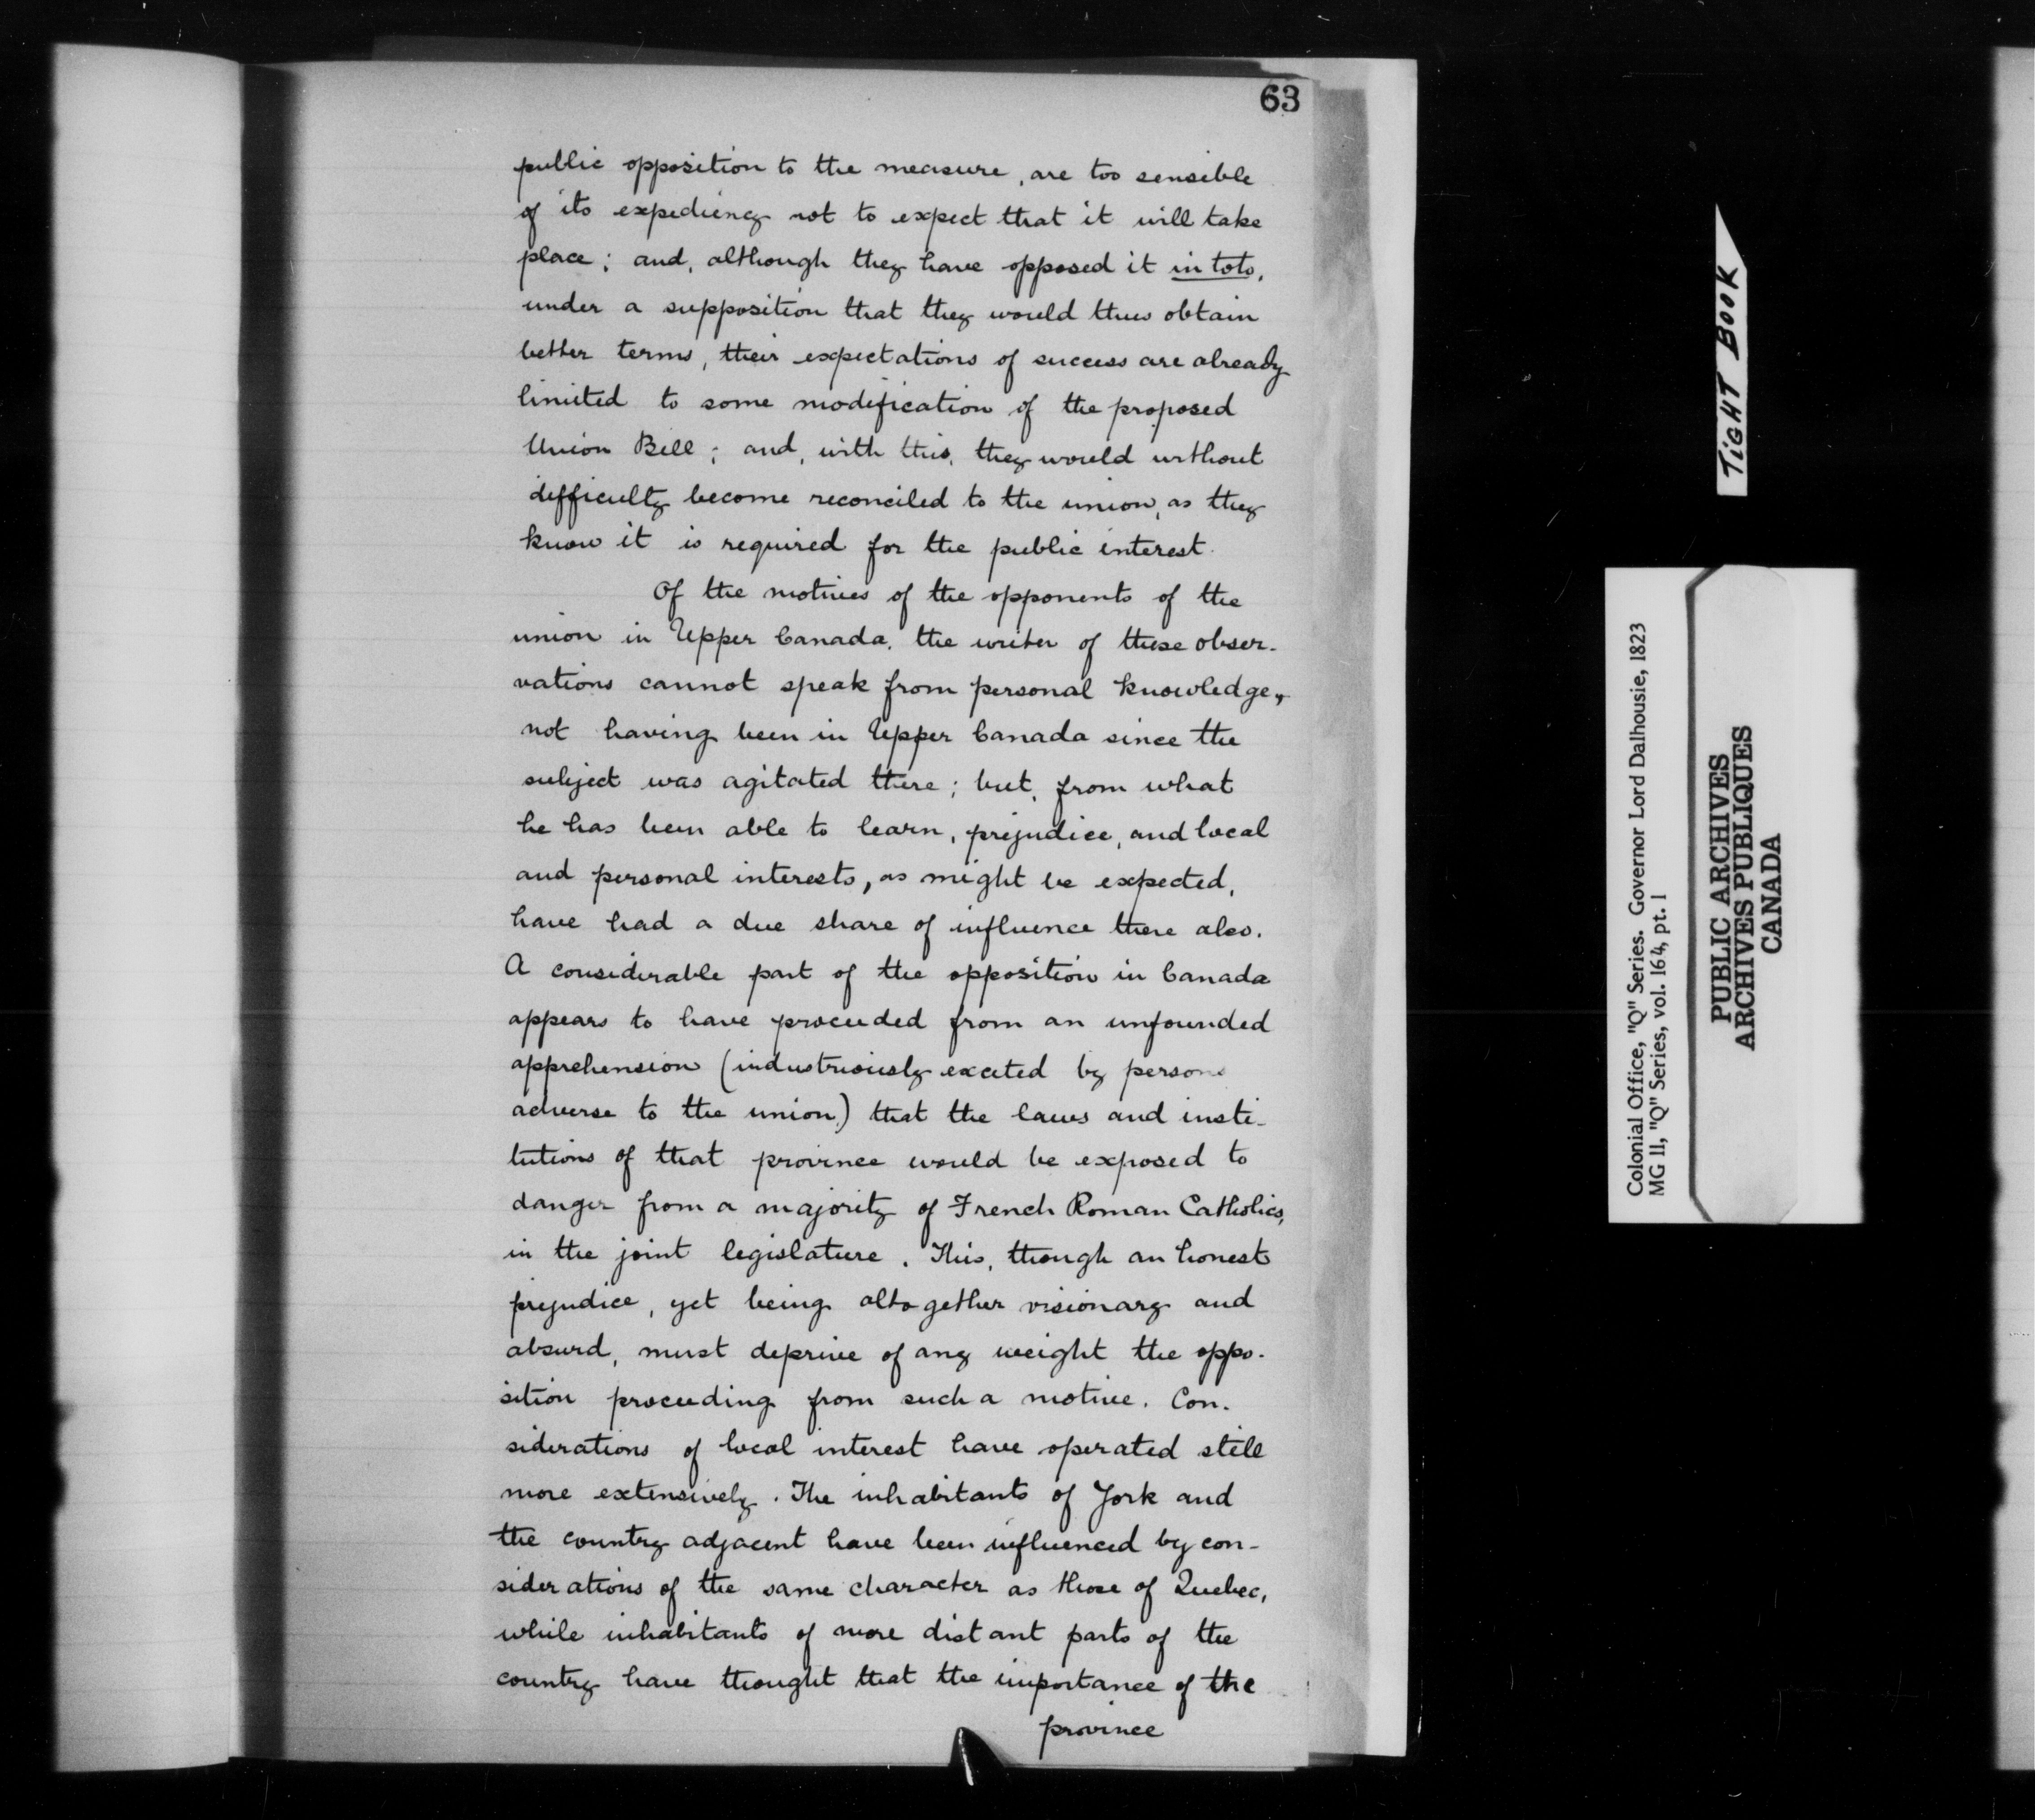 63
public opposition to the measure, are too sensible
of its expediency not to expect that it will take
place; and, although they have opposed it in toto,
under a supposition that they would thus obtain
better terms, their expectations of success are already
limited to some modification of the proposed
Union Bill; and, with this, they would without
difficulty become reconciled to the union, as they
know it is required for the public interest.
Of the motives of the opponents of the
union in Upper Canada, the writer of these obser-
vations cannot speak from personal knowledge,
not having been in Upper Canada since the
subject was agitated there; but, from what
he has been able to learn, prejudice, and local
and personal interests, as might be expected,
have had a due share of influence there also.
A considerable part of the opposition in Canada
appears to have proceeded from an unfounded
apprehension (industriously excited by persons
adverse to the union) that the laws and insti-
tutions of that province would be exposed to
danger from a majority of French Roman Catholics,
in the joint legislature. This, though an honest
prejudice, yet being altogether visionary and
absurd, must deprive of any weight the oppo-
sition proceeding from such a motive. Con-
siderations of local interest have operated still
more extensively. The inhabitants of York and
the country adjacent have been influenced by con-
siderations of the same character as those of Quebec,
while inhabitants of more distant parts of the
country have thought that the importance of the
province
TIGHT BOOK
Colonial Office, "Q" Series. Governor Lord Dalhousie, 1823
MG 11, "Q" Series, vol. 164, pt. 1
PUBLIC ARCHIVES
ARCHIVES PUBLIQUES
CANADA